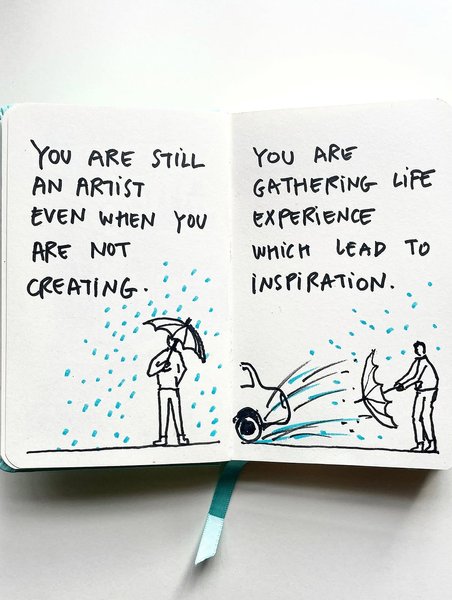 YOU ARE STILL
AN ARTIST
EVEN WHEN YOU
ARE NOT
CREATING.
YOU ARE
GATHERING LIFE
EXPERIENCE
WHICH LEAD TO
INSPIRATION.